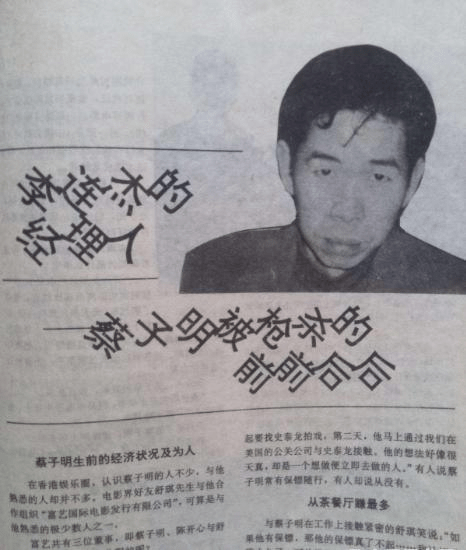 李连杰的
经理人
——蔡子明被枪杀的
前前后后
蔡子明生前的经济状况及为人
在香港娱乐圈，认识蔡子明的人不少，与他
熟悉的人却并不多。电影界好友舒琪先生与他合
作组织“富艺国际电影发行有限公司”，可算是与
他熟悉的极少数人之一。
富艺共有三位董事，即蔡子明、陈开心与舒
起要找史泰龙拍戏，第二天，他马上通过我们在
美国的公关公司与史泰龙接触。他的想法好像很
天真，却是一个想做便立即去做的人。”有人说蔡
子明常有保镖随行，有人却说从没有。
从茶餐厅赚最多
与蔡子明在工作上接触紧密的舒琪笑说，“如
果他有保镖，那他的保镖真了不起……